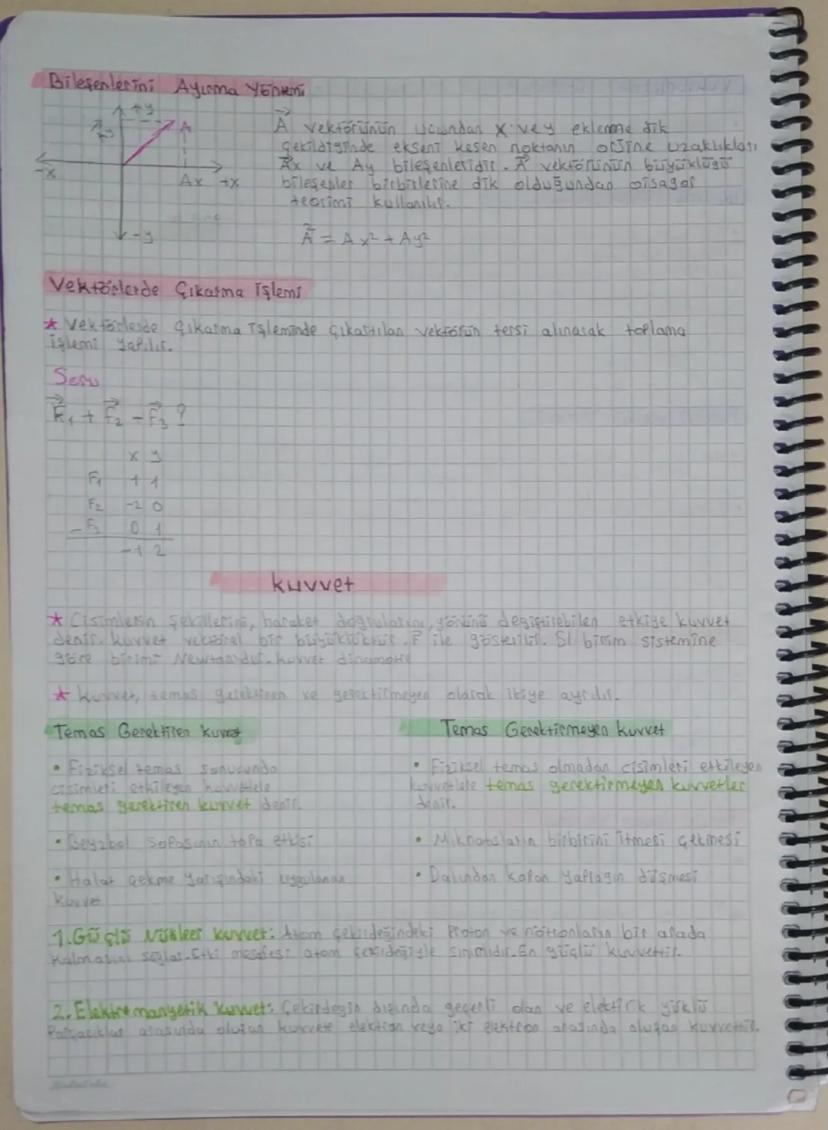 Bileşenlerini Ayırma Yöntemi
+y
A
Ay
-x
Ax +x
-y
A vektörünün ucundan x ve y eklenme dik
çekildiğinde ekseni kesen noktanın orjine uzaklıkları
Ax ve Ay bileşenleridir. A vektörünün büyüklüğü
bileşenler birbirlerine dik olduğundan pisagor
teorimi kullanılır.
A = Ax² + Ay²
Vektörlerde Çıkarma İşlemi
* Vektörlerde çıkarma işleminde çıkartılan vektörün tersi alınarak toplama
işlemi yapılır.
Soru
F₁ + F₂ - F₃ ?
x y
F₁ 1 1
F₂ -2 0
- F₃ 0 1
-1 2
kuvvet
* Cisimlerin şekillerini, hareket doğrularını, yönünü değiştirebilen etkiye kuvvet
denir. kuvvet vektörel bir büyüklüktür. F ile gösterilir. SI birim sistemine
göre birimi Newtondur. kuvvet
* Kuvvet, temas gerektiren ve gerektirmeyen olarak ikiye ayrılır.
Temas Gerektiren kuvvet
• Fiziksel temas sonucunda
cisimleri etkileyen kuvvetlele
temas gerektiren kuvvet denir.
• Beyzbol sopasının topa etkisi
• Halat çekme yarışındaki uygulanan
kuvvet
Temas Gerektirmeyen kuvvet
• Fiziksel temas olmadan cisimleri etkileyen
kuvvetlele temas gerektirmeyen kuvvetler
denir.
• Mıknatısların birbirini itmesi çekmesi
• Dalından kopan yaprağın düşmesi
1. Güçlü Nükleer kuvvet: Atom çekirdeğindeki Proton ve nötronların bir arada
kalmasını sağlar. Etki mesafesi atom çekirdeğiyle sınırlıdır. En güçlü kuvvettir.
2. Elektromanyetik kuvvet: Çekirdeğin dışında geçerli olan ve elektirik yüklü
Parçacıklar arasında oluşan kuvvete elektron veya iki elektron arasında oluşan kuvvettir.